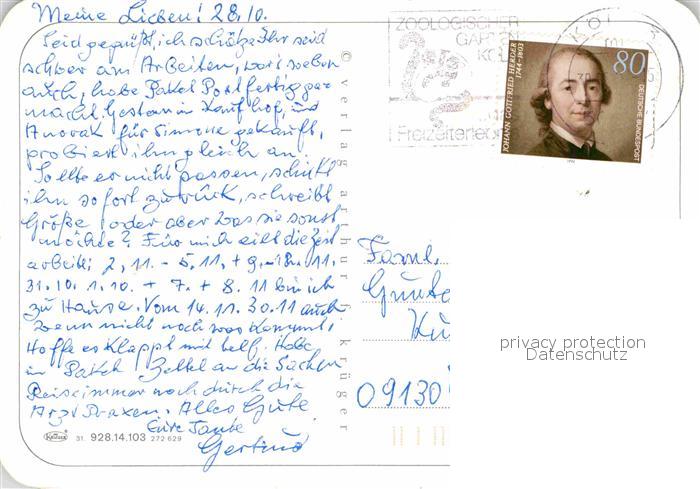 Meine Lieben! 28.10.
Seid gegrüßt, ich schätze Ihr seid
schwer am Arbeiten, war soeben
auch, habe Paket Postfertig ge
macht. Gestern in Kaufhof, und
Anorak für Simone gekauft,
probiert ihn gleich an.
Sollte er nicht passen, schickt
ihn sofort zurück, schreibt
Größe oder aber was sie sonst
möchte? Für mich eilt die Zeit
arbeite: 2.11. - 5.11. + 9. 11.
31.10. 1.10. + 7. + 8.11 bin ich
zu Hause. Vom 14.11. 30.11 auch
wenn nicht noch was kommt.
Hoffe es klappt mit Helf. Habe
in Paket Zettel an die Sachen
Reise immer noch durch die
Arzt Praxen. Alles Gute
Eure Tante
Gertrud
© verlag arthur f. krüger
Krüger 31. 928.14.103 272 629
ZOOLOGISCHER
GARTEN
KÖL
Freizeiterleb
KÖL
JOHANN GOTTFRIED HERDER
1744-1803
80
DEUTSCHE BUNDESPOST
1994
Faml.
Günte
09130
privacy protection
Datenschutz